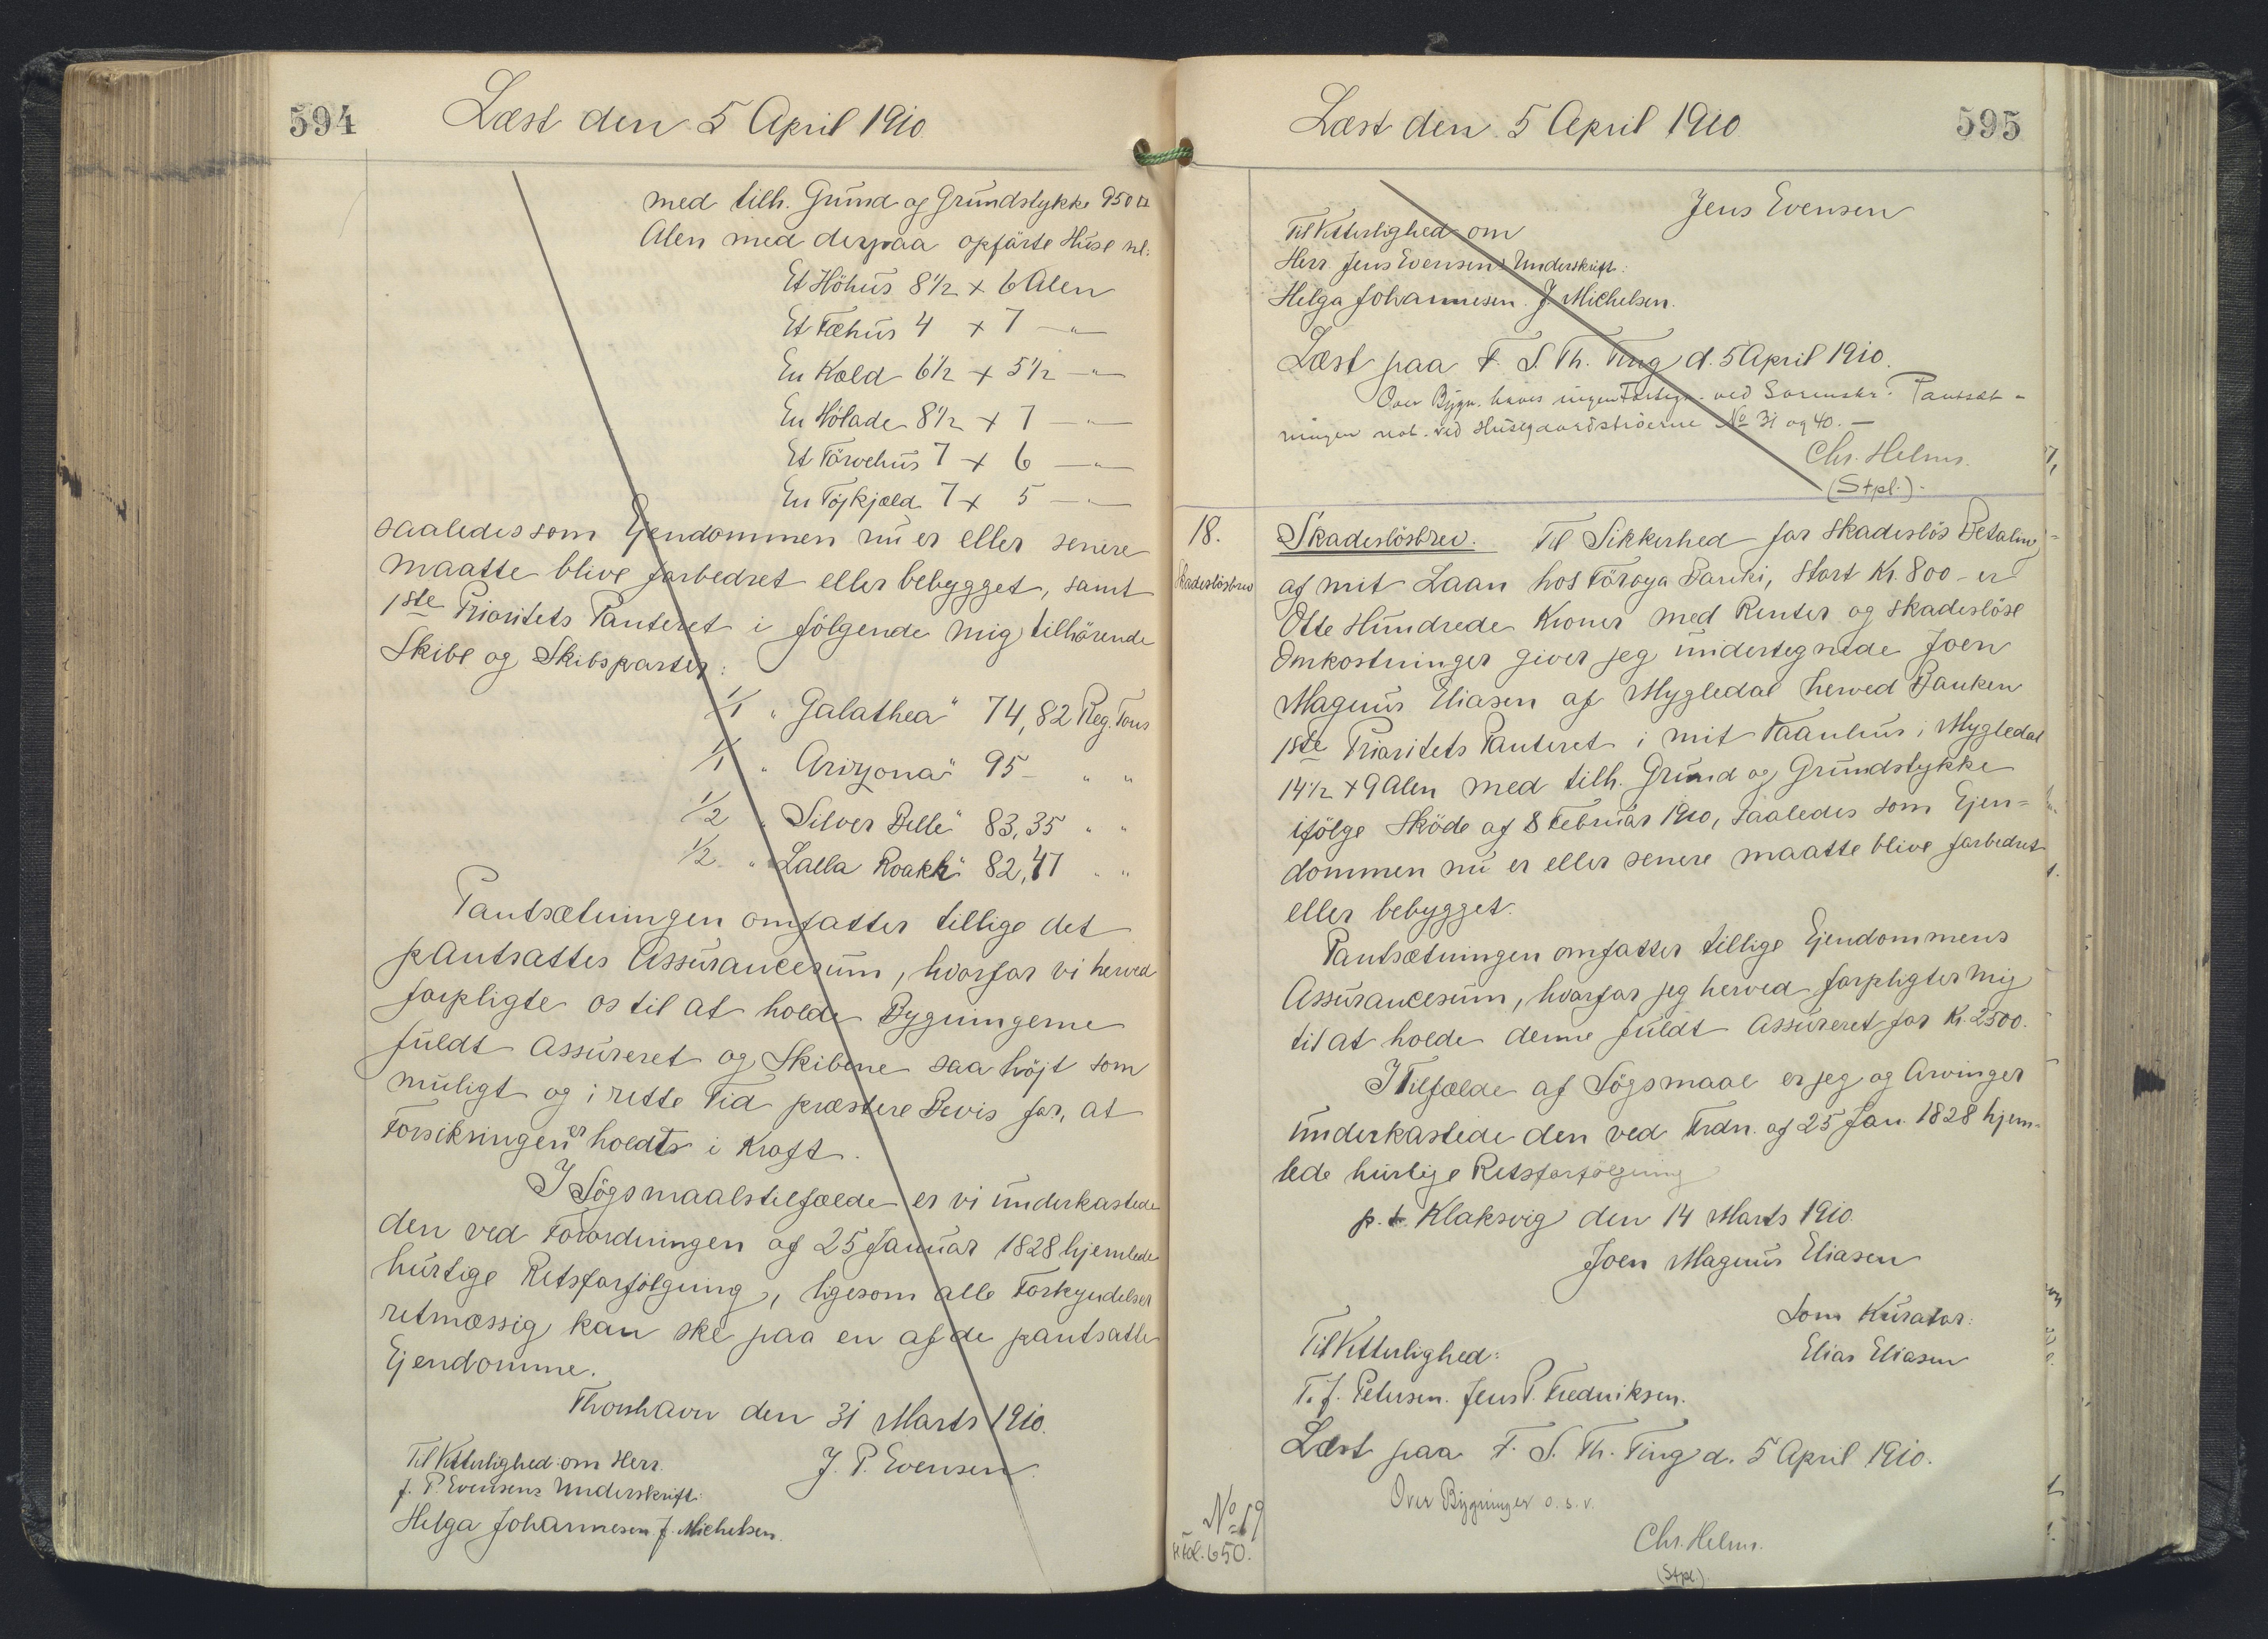 594
Læst den 5 April 1910
med tilh. Grund og Grundstykke 950 □
Alen med derpaa opførte Huse nl:
Et Höhus 8½ x 6 Alen
Et Fæhus 4 x 7 — " —
En Kæld 6½ x 5½ — " —
En Hølade 8½ x 7 — " —
Et Törvehus 7 x 6 — " —
En Töjkjæld 7 x 5 — " —
saaledes som Ejendommen nu er eller senere
maatte blive forbedret eller bebygget, samt
1ste Prioritets Panteret i følgende mig tilhörende
Skibe og Skibsparter:
1/1 "Galathea" 74,82 Reg. Tons
1/1 "Arizona" 95 - " "
1/2 "Silver Belle" 83,35 " "
1/2 "Lalla Roakh" 82,47 " "
Pantsætningen omfatter tillige det
pantsattes Assurancesum, hvorfor vi herved
forpligte os til at holde Bygningerne
fuldt assureret og Skibene saa höjt som
muligt og i rette Tid præstere Bevis for, at
Forsikringen er holdts i Kraft.
I Sögsmaalstilfælde er vi underkastede
den ved Forordningen af 25 Januar 1828 hjemlede
hurtige Retsforfølgning, ligesom alle Forkyndelser
retmæssig kan ske paa en af de pantsatte
Ejendomme.
Thorshavn den 31 Marts 1910.
Til Vitterlighed om Herr. J. P. Evensen.
J. P. Evensens Underskrift:
Helga Johannesen J. Michelsen.
Læst den 5 April 1910
595
Jens Evensen
Til Vitterlighed om
Herr. Jens Evensens Underskrift:
Helga Johannesen. J. Michelsen.
Læst paa F. S. Th. Ting d. 5 April 1910.
Over Bygn. haves ingen ved Sorenskr. Pantsæt-
ningen not. ved Husegaardstroerne No 31 og 40. —
Chr. Helms.
(Stpl.)
18.
Skadeslösbrev
Skadeslösbrev. Til Sikkerhed for skadeslös Betaling
af mit Laan hos Föroya Banki, stort Kr. 800 - er
Otte Hundrede Kroner med Renter og skadeslöse
Omkostninger giver jeg undertegnede Joen
Magnus Eliasen af Mygledal herved Banken
1ste Prioritets Panteret i mit Vaanhus i Mygledal
14½ x 9 Alen med tilh. Grund og Grundstykke
ifölge Sköde af 8 Februar 1910, saaledes som Ejen=
dommen nu er eller senere maatte blive forbedret
eller bebygget.
Pantsætningen omfatter tillige Ejendommens
Assurancesum, hvorfor jeg herved forpligter mig
til at holde denne fuldt assureret for Kr. 2500.
I Tilfælde af Sögsmaal er jeg og Arvinger
underkastede den ved Frdn. af 25 Jan. 1828 hjem-
lede hurtige Retsforfölgning
p. t. Klaksvig den 14 Marts 1910.
Joen Magnus Eliasen
Som Kurator:
Til Vitterlighed: Elias Eliasen
T. J. Petersen. Jens P. Fredriksen.
Læst paa F. S. Th. Ting d. 5 April 1910.
Over Bygninger o. s. v.
Chr. Helms.
(Stpl.)
No 19
Fol. 650.